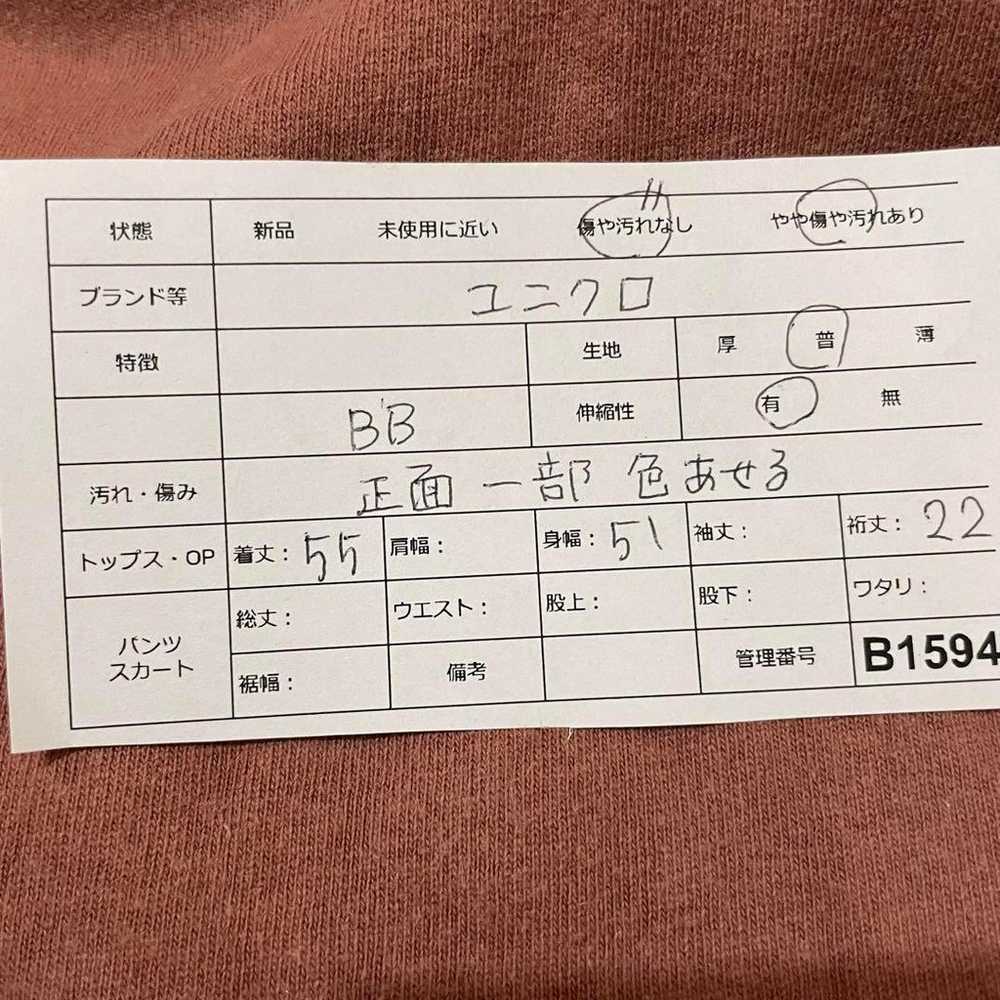 状態 新品 未使用に近い 傷や汚れなし やや傷や汚れあり
ブランド等 ユニクロ
特徴 生地 厚 普 薄
BB 伸縮性 有 無
汚れ・傷み 正面 一部 色あせる
トップス・OP 着丈: 55 肩幅: 身幅: 51 袖丈: 裄丈: 22
パンツ スカート 総丈: ウエスト: 股上: 股下: ワタリ:
裾幅: 備考 管理番号 B1594